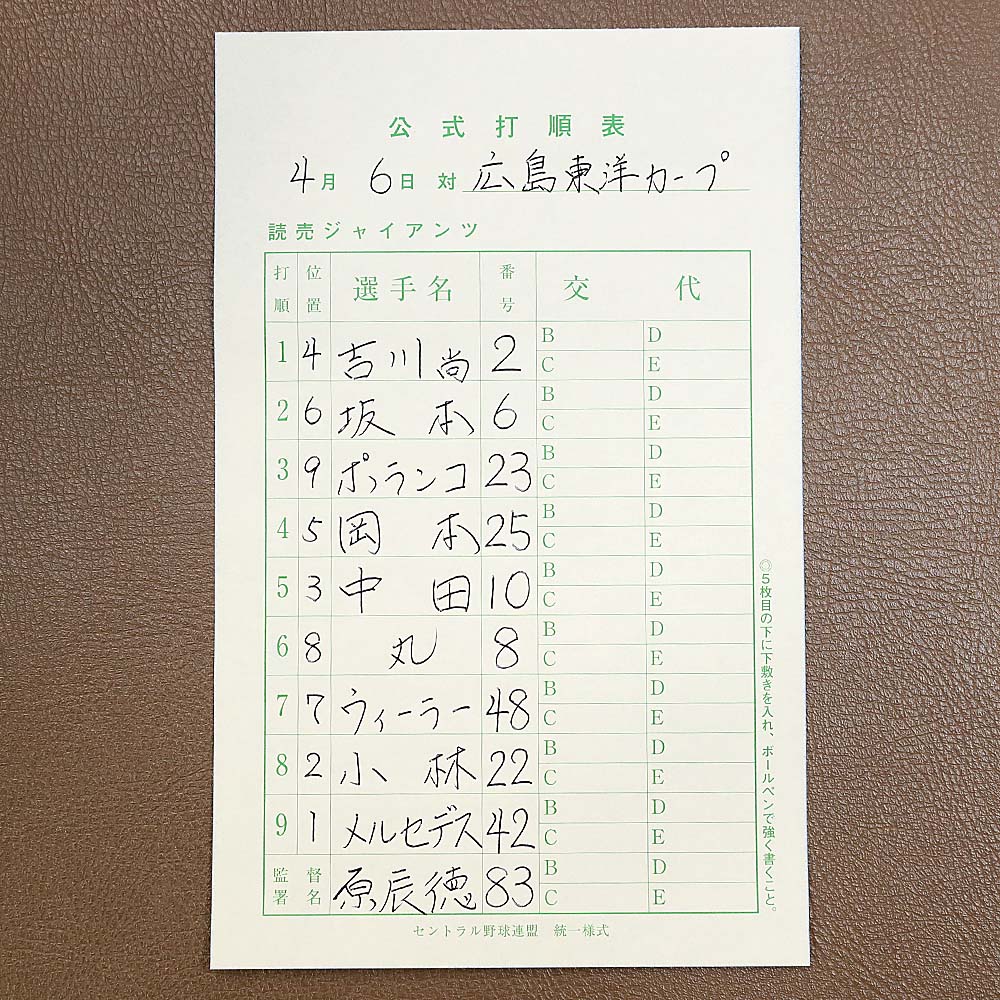 公式打順表
4月 6日 対 広島東洋カープ
読売ジャイアンツ
打順 位置 選手名 番号 交代
1 4 吉川尚 2 B D C E
2 6 坂本 6 B D C E
3 9 ポランコ 23 B D C E
4 5 岡本 25 B D C E
5 3 中田 10 B D C E
6 8 丸 8 B D C E
7 7 ウィーラー 48 B D C E
8 2 小林 22 B D C E
9 1 メルセデス 42 B D C E
監督署名 原辰徳 83 B D C E
セントラル野球連盟 統一様式
◎5枚目の下に下敷きを入れ、ボールペンで強く書くこと。